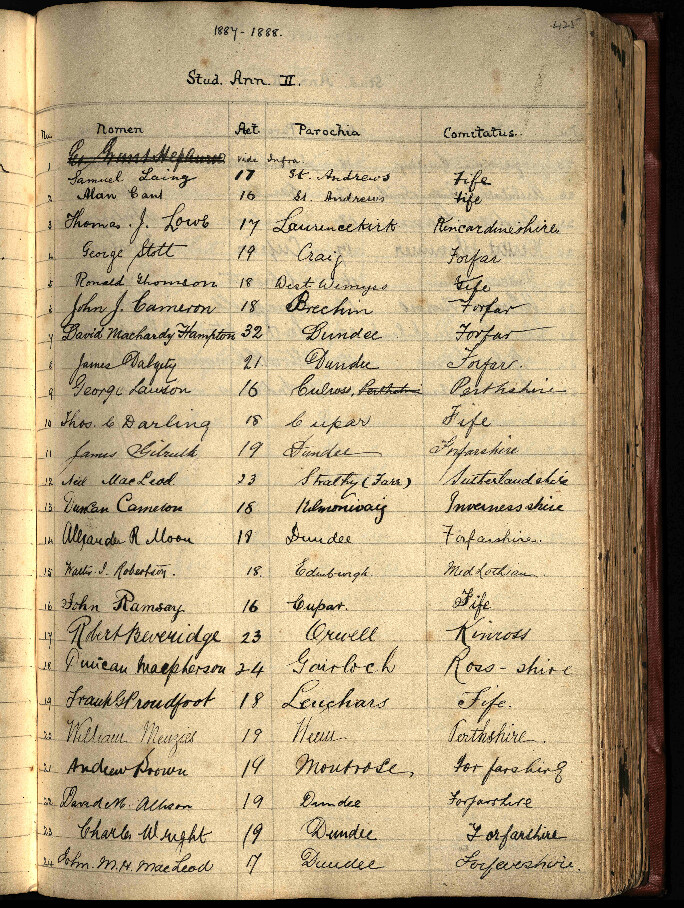 425
1887-1888.
Stud. Ann. II.
No. Nomen Aet Parochia Comitatus.
vide Infra.
1 Samuel Laing 17 St. Andrews Fife
2 Alan Cant 16 St. Andrews Fife
3 Thomas. J. Lowe 17 Laurencekirk Kincardineshire
4 George Stott 19 Craig Forfar
5 Ronald Thomson 18 West Wemyss Fife
6 John J. Cameron 18 Brechin Forfar
7 David Machardy Hampton 32 Dundee Forfar
8 James Dalgety 21 Dundee Forfar.
9 George Lawson 16 Culross, Perthshire Perthshire
10 Thos. C Darling 18 Cupar Fife
11 James Gilruth 19 Dundee Forfarshire
12 Neil MacLeod 23 Strathy (Farr) Sutherlandshire
13 Duncan Cameron 18 Kilmonivaig Invernessshire
14 Alexander R Moon 18 Dundee Forfarshire.
15 Robertson. 18 Edinburgh. MidLothian
16 John Ramsay 16 Cupar. Fife
17 Robert Beveridge 23 Orwell Kinross
18 Duncan Macpherson 24 Gairloch Ross-shire
19 Frank G Proudfoot 18 Leuchars Fife.
20 William Menzies 19 Perthshire
21 Andrew Brown 19 Montrose, Forfarshire
22 David M. Allison 19 Dundee Forfarshire
23 Charles Wright 19 Dundee Forfarshire
24 John. M. H. MacLeod 17 Dundee Forfarshire.